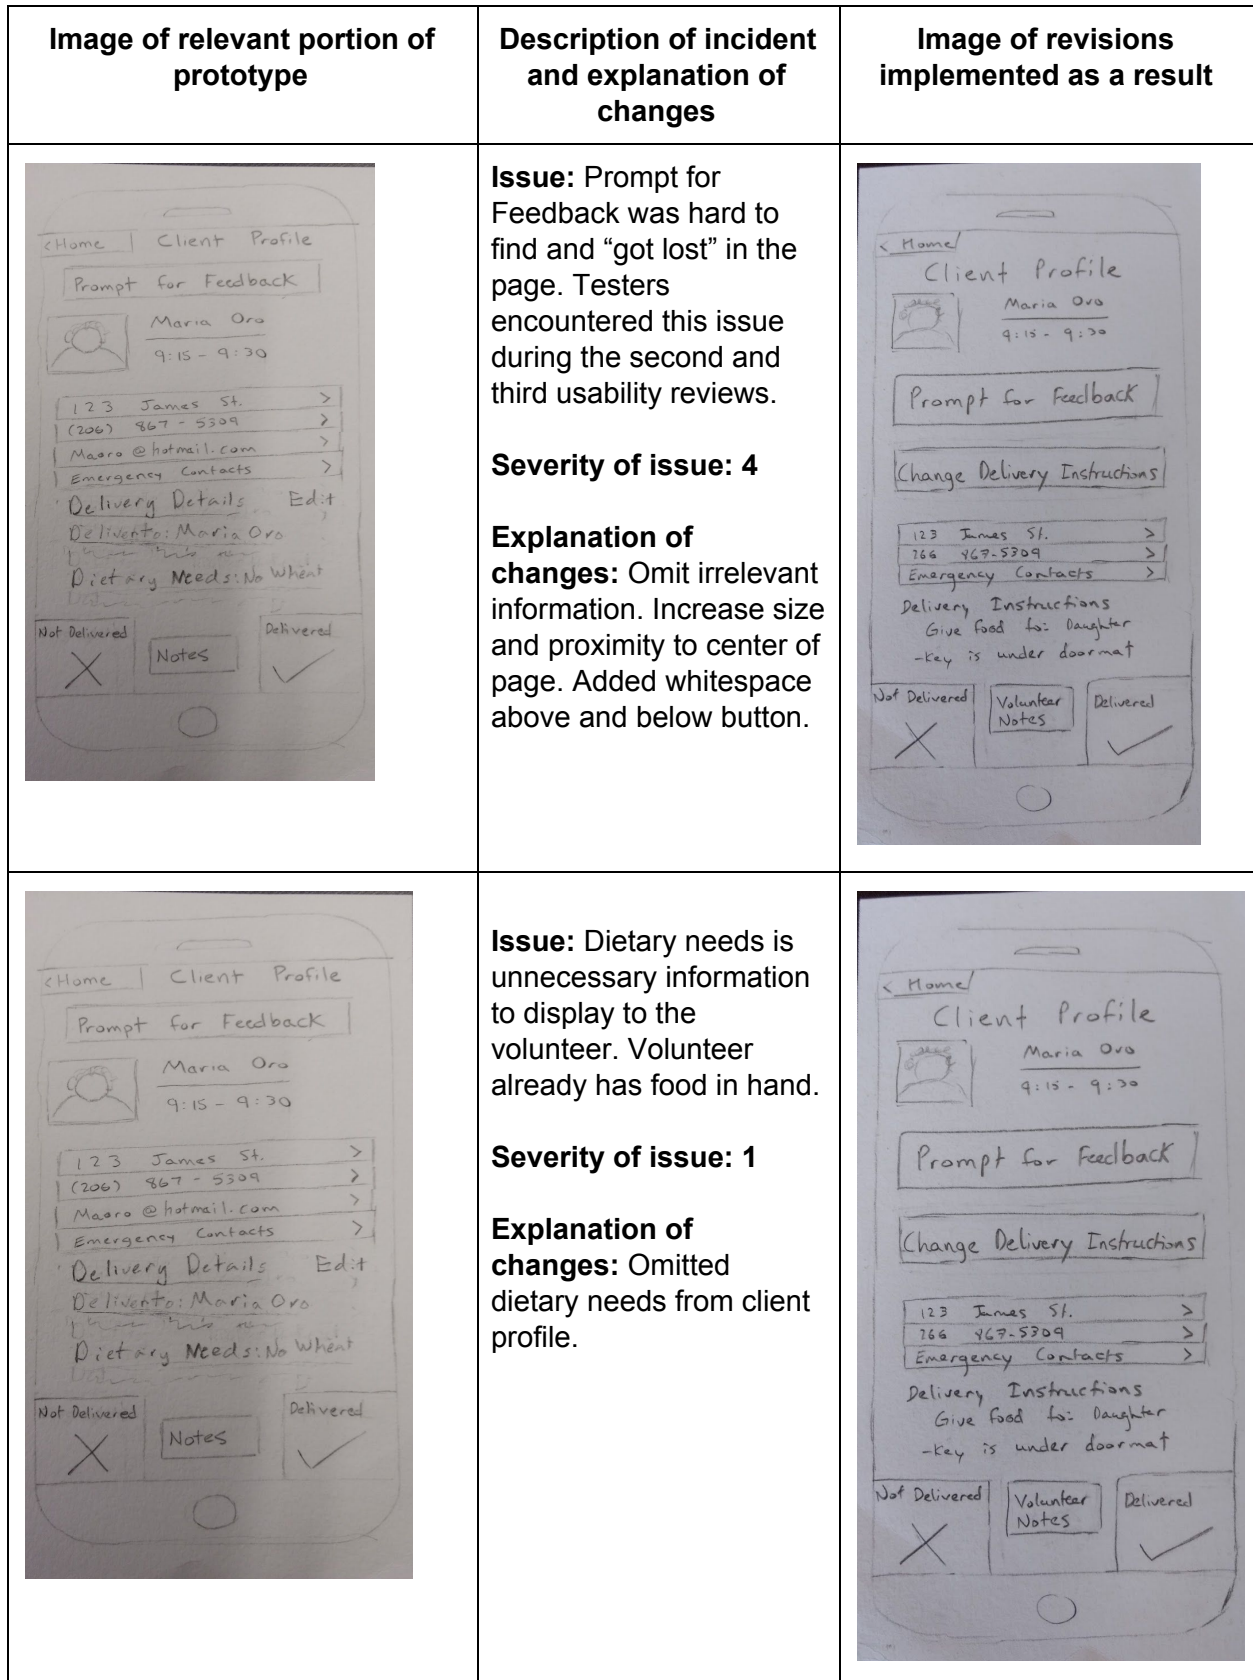 Image of relevant portion of
prototype
Description of incident
and explanation of
changes
Image of revisions
implemented as a result
< Home
Client Profile
Prompt for Feedback
Maria Oro
9:15 - 9:30
123 James St. >
(206) 867-5309 >
Maoro@hotmail.com >
Emergency Contacts >
Delivery Details Edit
Maria Oro
Dietary Needs: No Wheat
Not Delivered
Notes
Delivered
Issue: Prompt for
Feedback was hard to
find and “got lost” in the
page. Testers
encountered this issue
during the second and
third usability reviews.
Severity of issue: 4
Explanation of
changes: Omit irrelevant
information. Increase size
and proximity to center of
page. Added whitespace
above and below button.
< Home
Client Profile
Maria Oro
9:15 - 9:30
Prompt for Feedback
Change Delivery Instructions
123 James St. >
867-5309 >
Emergency Contacts >
Delivery Instructions
Give food to: Daughter
-Key is under doormat
Not Delivered
Volunteer
Notes
Delivered
< Home
Client Profile
Prompt for Feedback
Maria Oro
9:15 - 9:30
123 James St. >
(206) 867-5309 >
Maoro@hotmail.com >
Emergency Contacts >
Delivery Details Edit
Maria Oro
Dietary Needs: No Wheat
Not Delivered
Notes
Delivered
Issue: Dietary needs is
unnecessary information
to display to the
volunteer. Volunteer
already has food in hand.
Severity of issue: 1
Explanation of
changes: Omitted
dietary needs from client
profile.
< Home
Client Profile
Maria Oro
9:15 - 9:30
Prompt for Feedback
Change Delivery Instructions
123 James St. >
867-5309 >
Emergency Contacts >
Delivery Instructions
Give food to: Daughter
-Key is under doormat
Not Delivered
Volunteer
Notes
Delivered